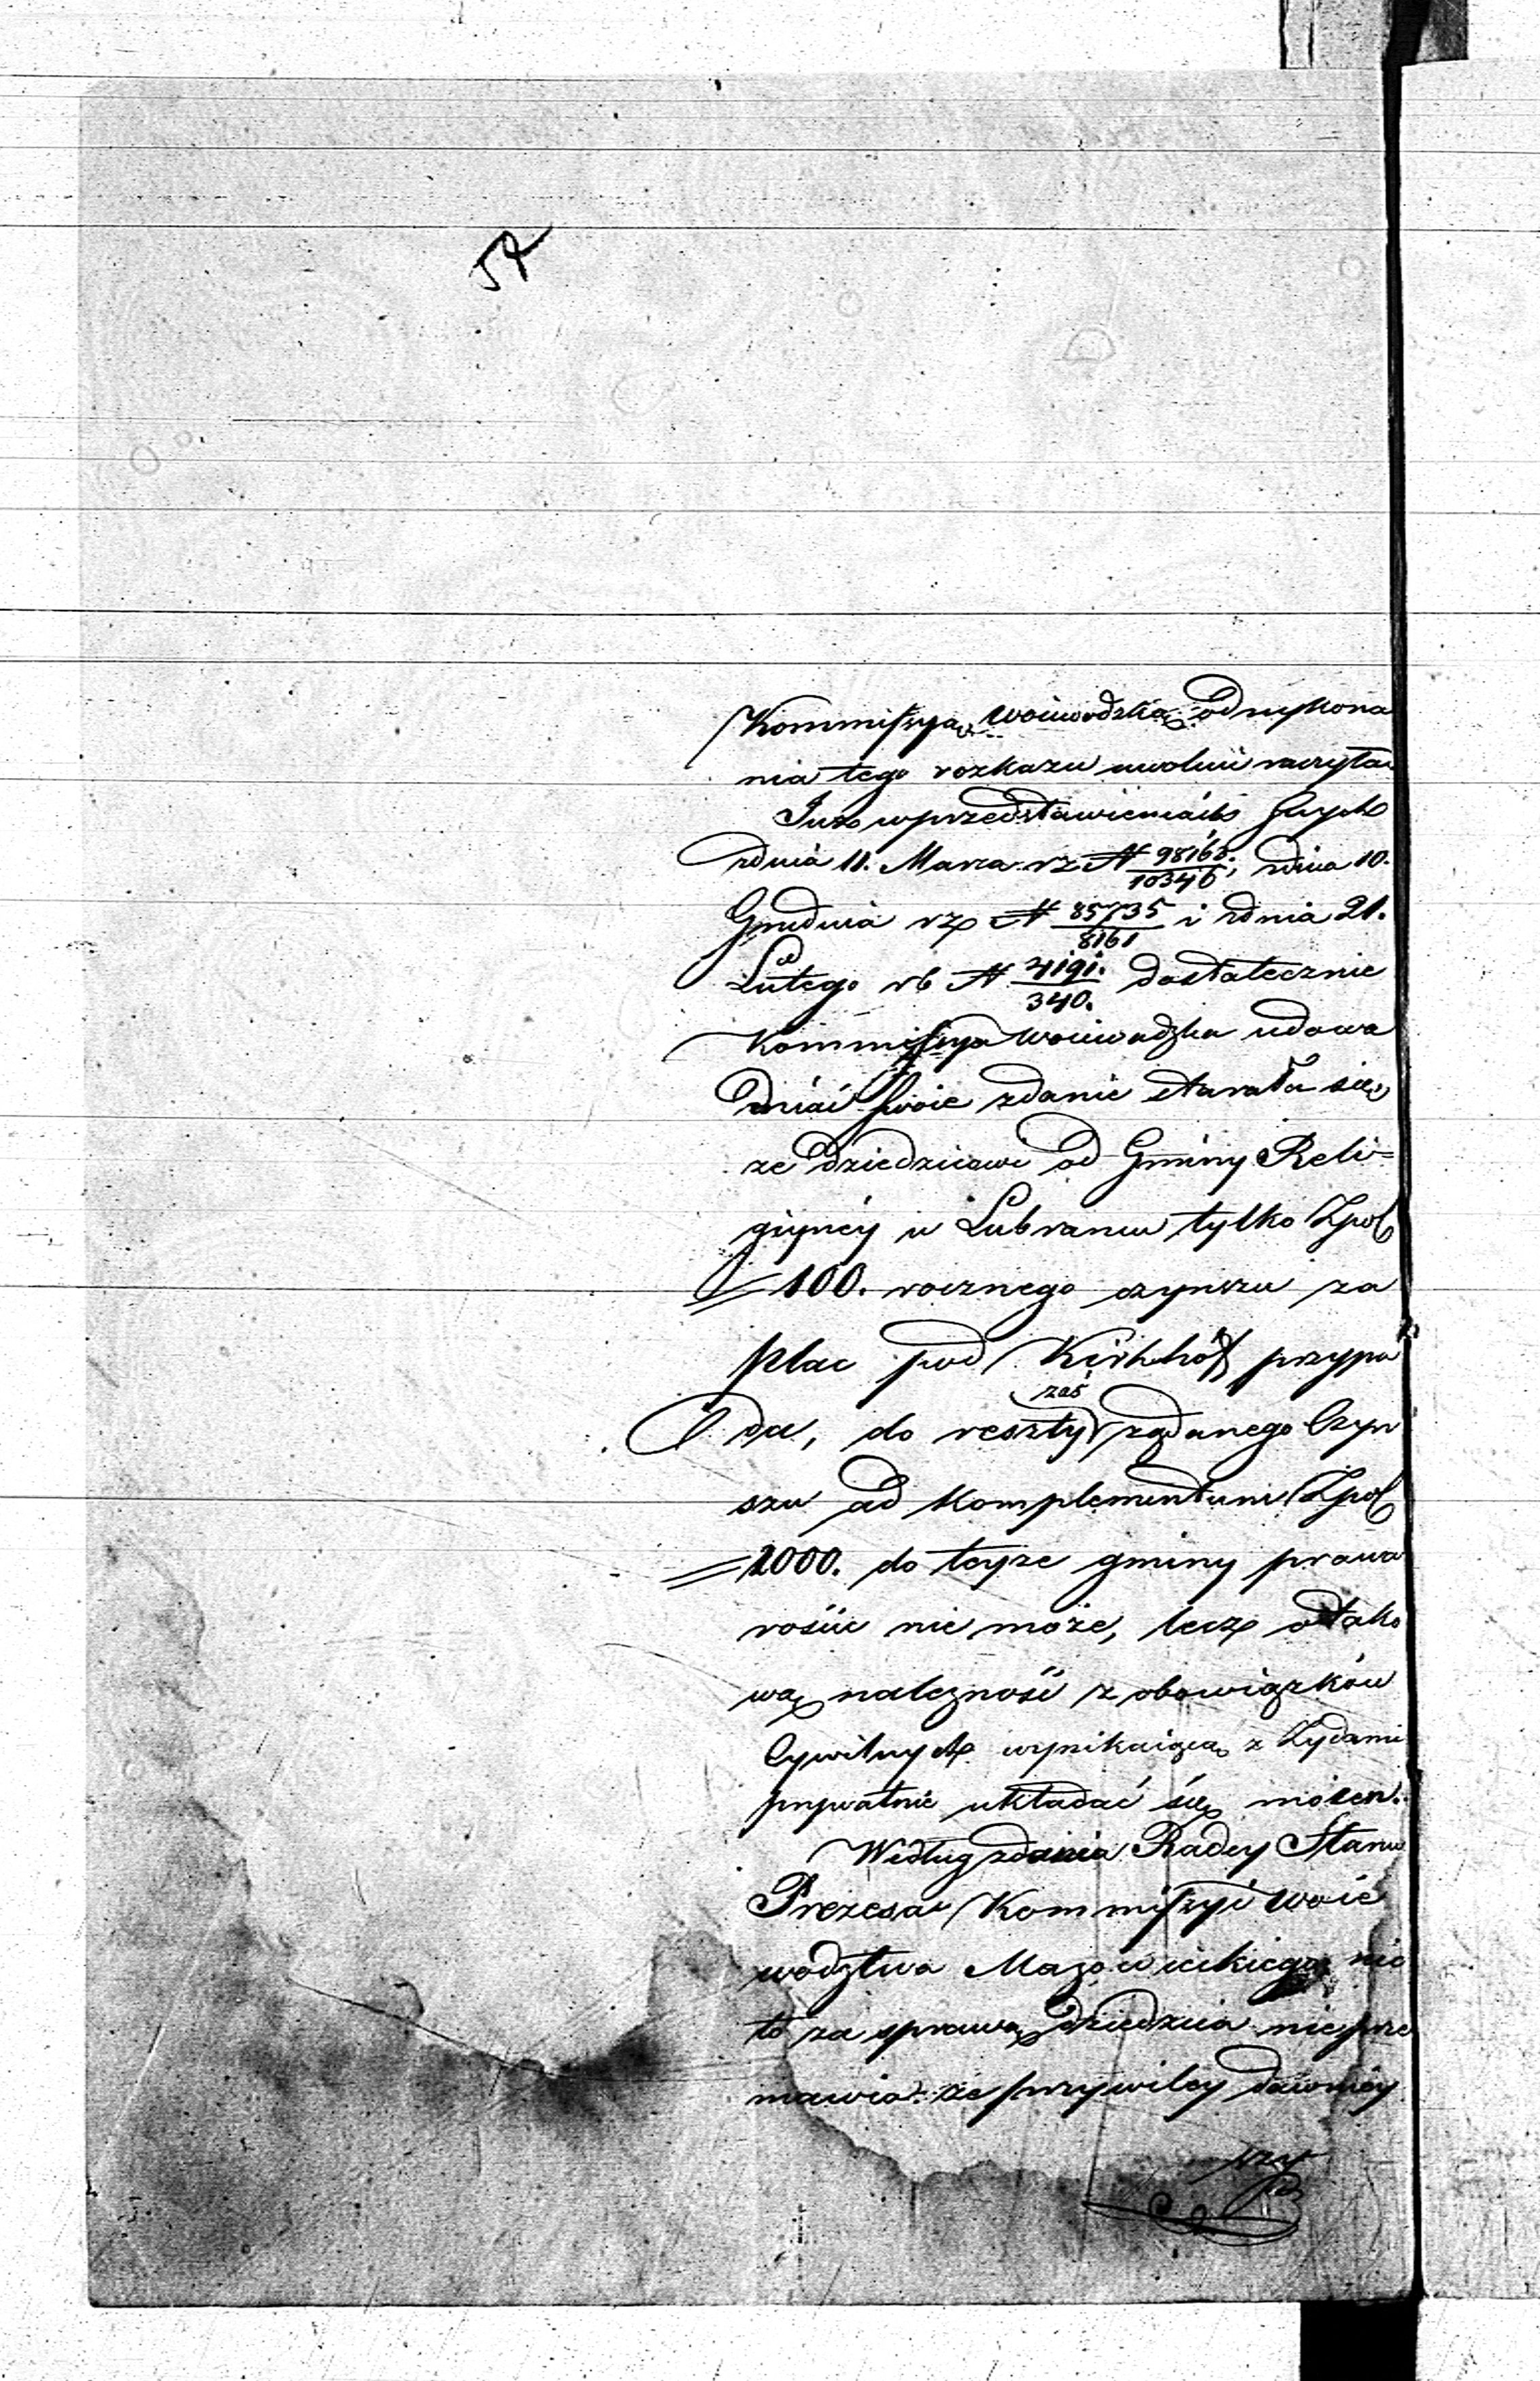 57
Kommissyą Woiewodzką od wykona
nia tego rozkazu uwolnić raczyła.
Już w przedstawieniach swych
z dnia 11. Marca r z N 98168./10346, z dnia 10.
Grudnia r z N 85735/8161 i z dnia 21.
Lutego r b N 4191./340. dostatecznie
Kommissya Woiewodzka udowa
dniać swoie zdanie starała się,
ze dziedzicowi od Gminy Reli=
giyney w Lubraniu tylko Zpol
=100. rocznego czynszu za
plac pod Kirkhóf przypa
da, do reszty zaś ządanego Czyn
szu ad komplementum Zpol
=1000. do teyze gminy prawa
rościć nie może, lecz o tako
wą należność z obowiązków
Cywilnych wynikaiącą z Zydami
prywatnie układać się może.
Według zdania Radcy Stanu
Prezesa Kommissyi Woie
wództwa Mazowieckiego nic
to za sprawą dziedzica nie prze
mawia. ze przywiley dawniey
szy